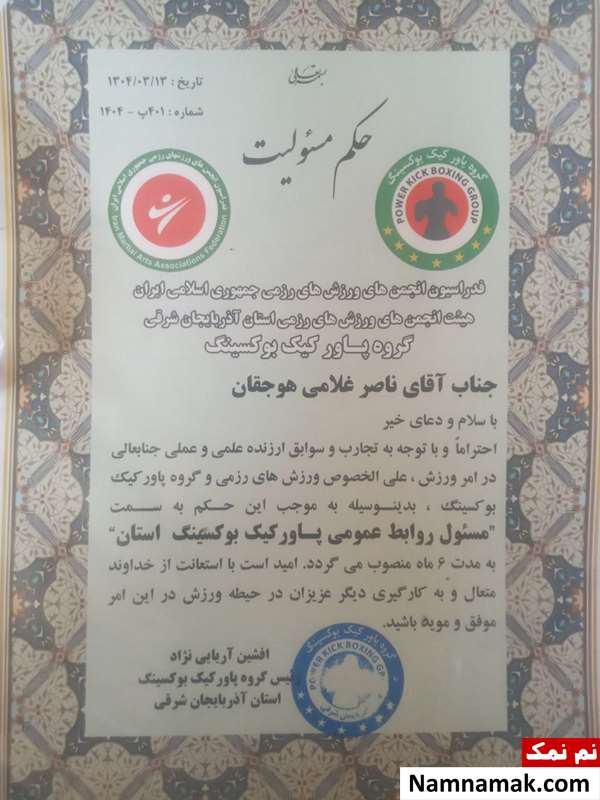 بسمه تعالی
تاریخ : ۱۳۰۴/۰۳/۱۳
شماره : ۴۰۱پ - ۱۴۰۴
حکم مسئولیت
فدراسیون انجمن های ورزشهای رزمی جمهوری اسلامی ایران
Iran Martial Arts Associations Federation
گروه پاور کیک بوکسینگ
POWER KICK BOXING GROUP
فدراسیون انجمن های ورزش های رزمی جمهوری اسلامی ایران
هیئت انجمن های ورزش های رزمی استان آذربایجان شرقی
گروه پاور کیک بوکسینگ
جناب آقای ناصر غلامی هوجقان
با سلام و دعای خیر
احتراماً و با توجه به تجارب و سوابق ارزنده علمی و عملی جنابعالی
در امر ورزش ، علی الخصوص ورزش های رزمی و گروه پاورکیک
بوکسینگ ، بدینوسیله به موجب این حکم به سمت
"مسئول روابط عمومی پاورکیک بوکسینگ استان"
به مدت ۶ ماه منصوب می گردد. امید است با استعانت از خداوند
متعال و به کارگیری دیگر عزیزان در حیطه ورزش در این امر
موفق و موید باشید.
افشین آریایی نژاد
رئیس گروه پاورکیک بوکسینگ
استان آذربایجان شرقی
گروه پاور کیک بوکسینگ
POWER KICK BOXING GP
آذربایجان شرقی
نم نمک
Namnamak.com